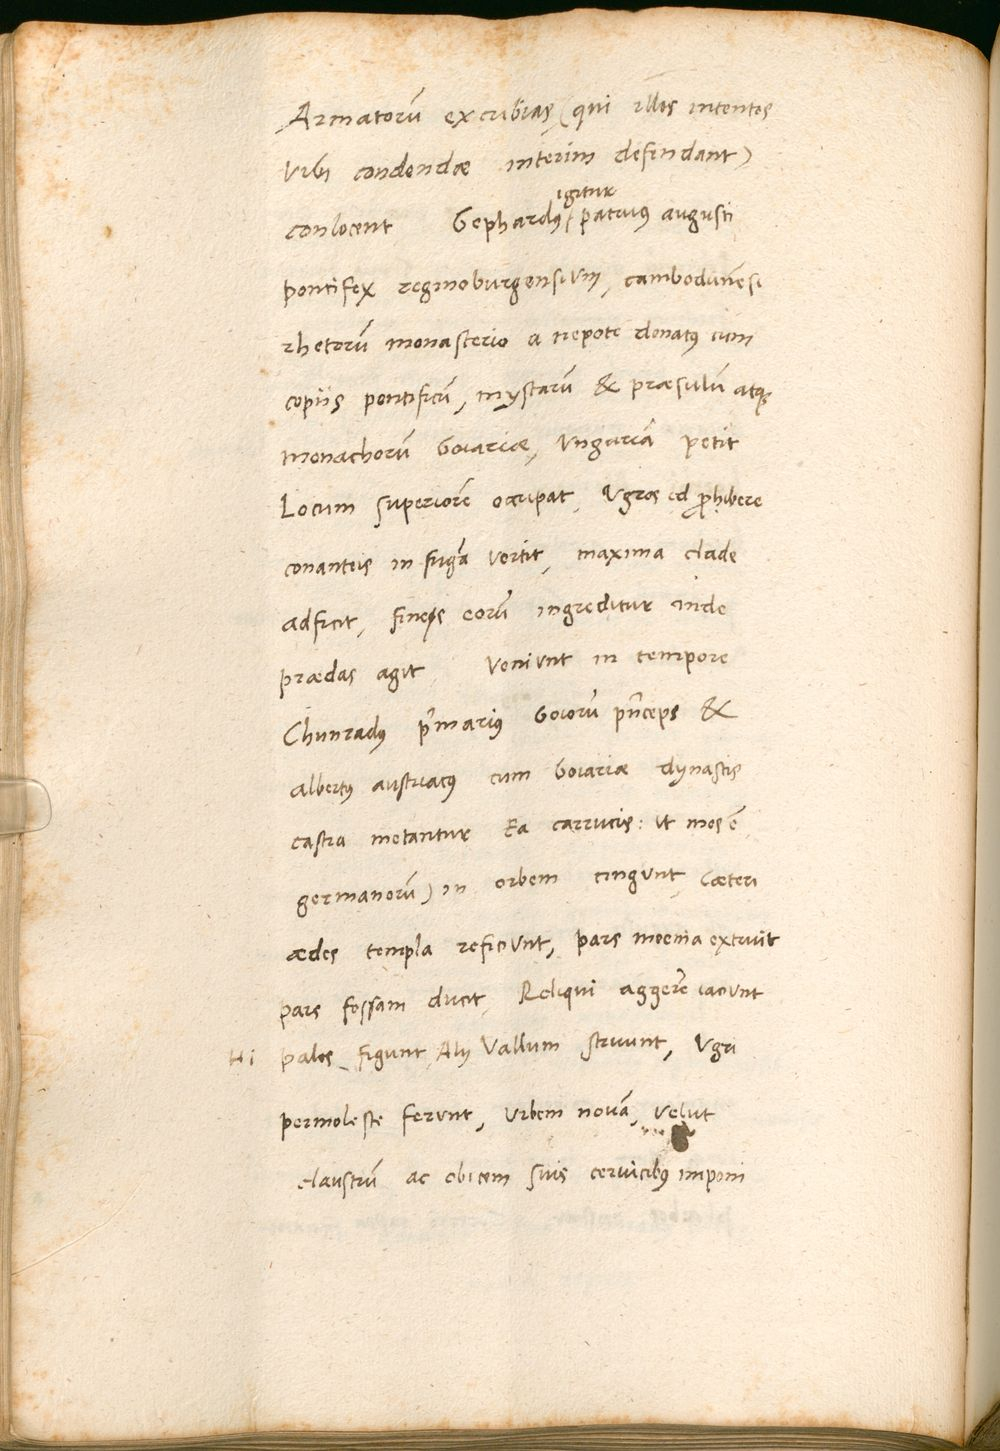 Armatorū excubias (qui illos intentos
Urbi condendæ interim defendant)
conlocent Gephardꝰ igitur patruus augusti
pontifex reginoburgensium, cambodunēsi
rhetorū monasterio a nepote donatꝰ cum
copiis pontificū, mystarū & præsulū atqꝫ
monachorū boiariæ, Ungariā petit
Locum superiorē occupat, Ugros id ꝓhibere
conanteis in fugā vertit, maxima clade
adficit, fineis eorū ingreditur inde
prædas agit Veniunt in tempore
Chunradꝰ p̄marius boiorū pn̄ceps &
albertꝰ austriacꝰ cum boiariæ dynastis
castra metantur Ea carrucis: ut mos ē
germanorū) in orbem cingunt, Cæteri
ædes templa reficiunt, pars moenia extruit
pars fossam ducit, Reliqui aggerē iaciunt
Hi palos figunt, Alij Vallum struunt, Ugri
permoleste ferunt, urbem novā, velut
claustrū ac obicem suis cervicibꝰ imponi